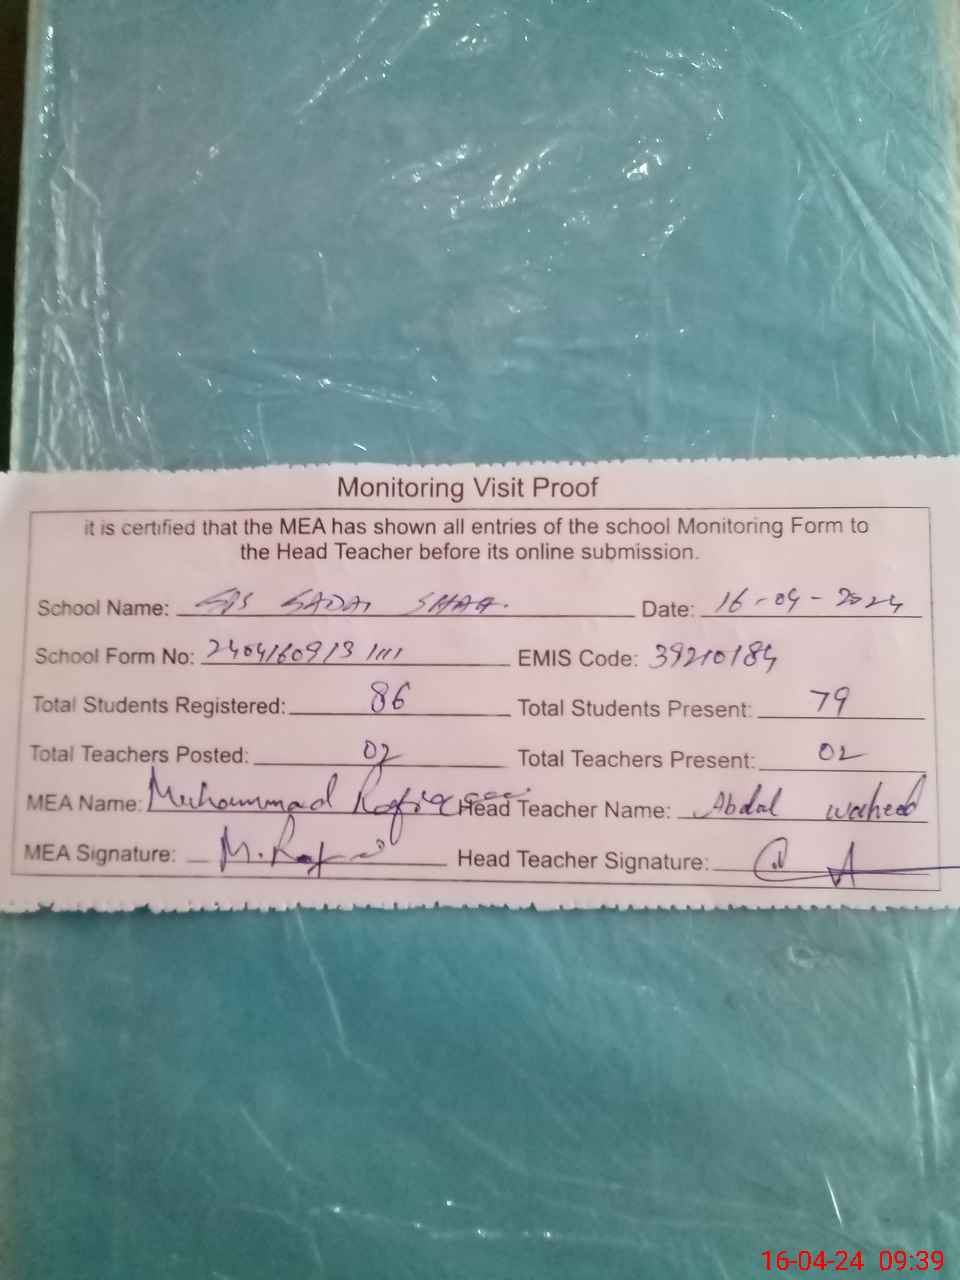 Monitoring Visit Proof
it is certified that the MEA has shown all entries of the school Monitoring Form to
the Head Teacher before its online submission.
School Name: SADAI SHAH. Date: 16-04-2024
School Form No: 2404160913 1111 EMIS Code: 39210184
Total Students Registered: 86 Total Students Present: 79
Total Teachers Posted: 02 Total Teachers Present: 02
MEA Name: Muhammad Rafiq Head Teacher Name: Abdal waheed
MEA Signature: M. Rafiq Head Teacher Signature:
16-04-24 09:39